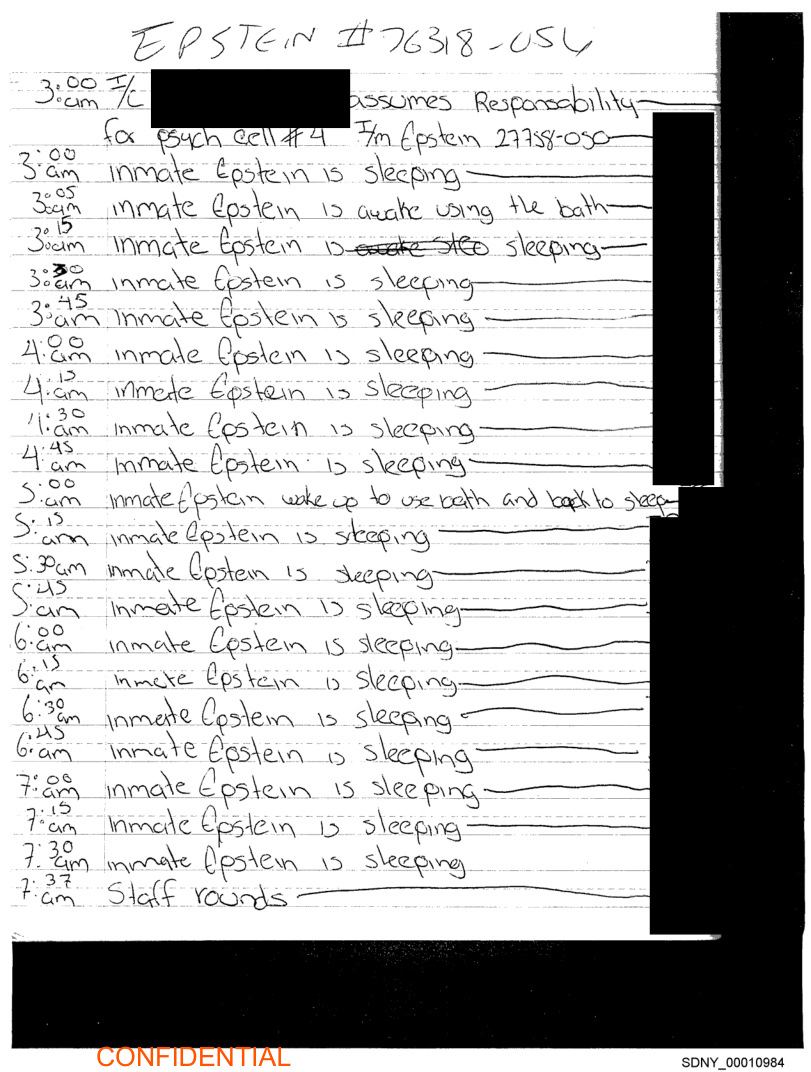 EPSTEIN # 76318-054
3:00 am I/C assumes Responsability
for psych cell # 4 I/m Epstein 27758-050
3:00 am inmate Epstein is sleeping
3:05 am inmate Epstein is awake using the bath
3:15 am inmate Epstein is sleeping
3:30 am inmate Epstein is sleeping
3:45 am inmate Epstein is sleeping
4:00 am inmate Epstein is sleeping
4:15 am inmate Epstein is sleeping
4:30 am inmate Epstein is sleeping
4:45 am inmate Epstein is sleeping
5:00 am inmate Epstein woke up to use bath and back to sleep
5:15 am inmate Epstein is sleeping
5:30 am inmate Epstein is sleeping
5:45 am inmate Epstein is sleeping
6:00 am inmate Epstein is sleeping
6:15 am inmate Epstein is sleeping
6:30 am inmate Epstein is sleeping
6:45 am inmate Epstein is sleeping
7:00 am inmate Epstein is sleeping
7:15 am inmate Epstein is sleeping
7:30 am inmate Epstein is sleeping
7:37 am Staff rounds
CONFIDENTIAL
SDNY_00010984